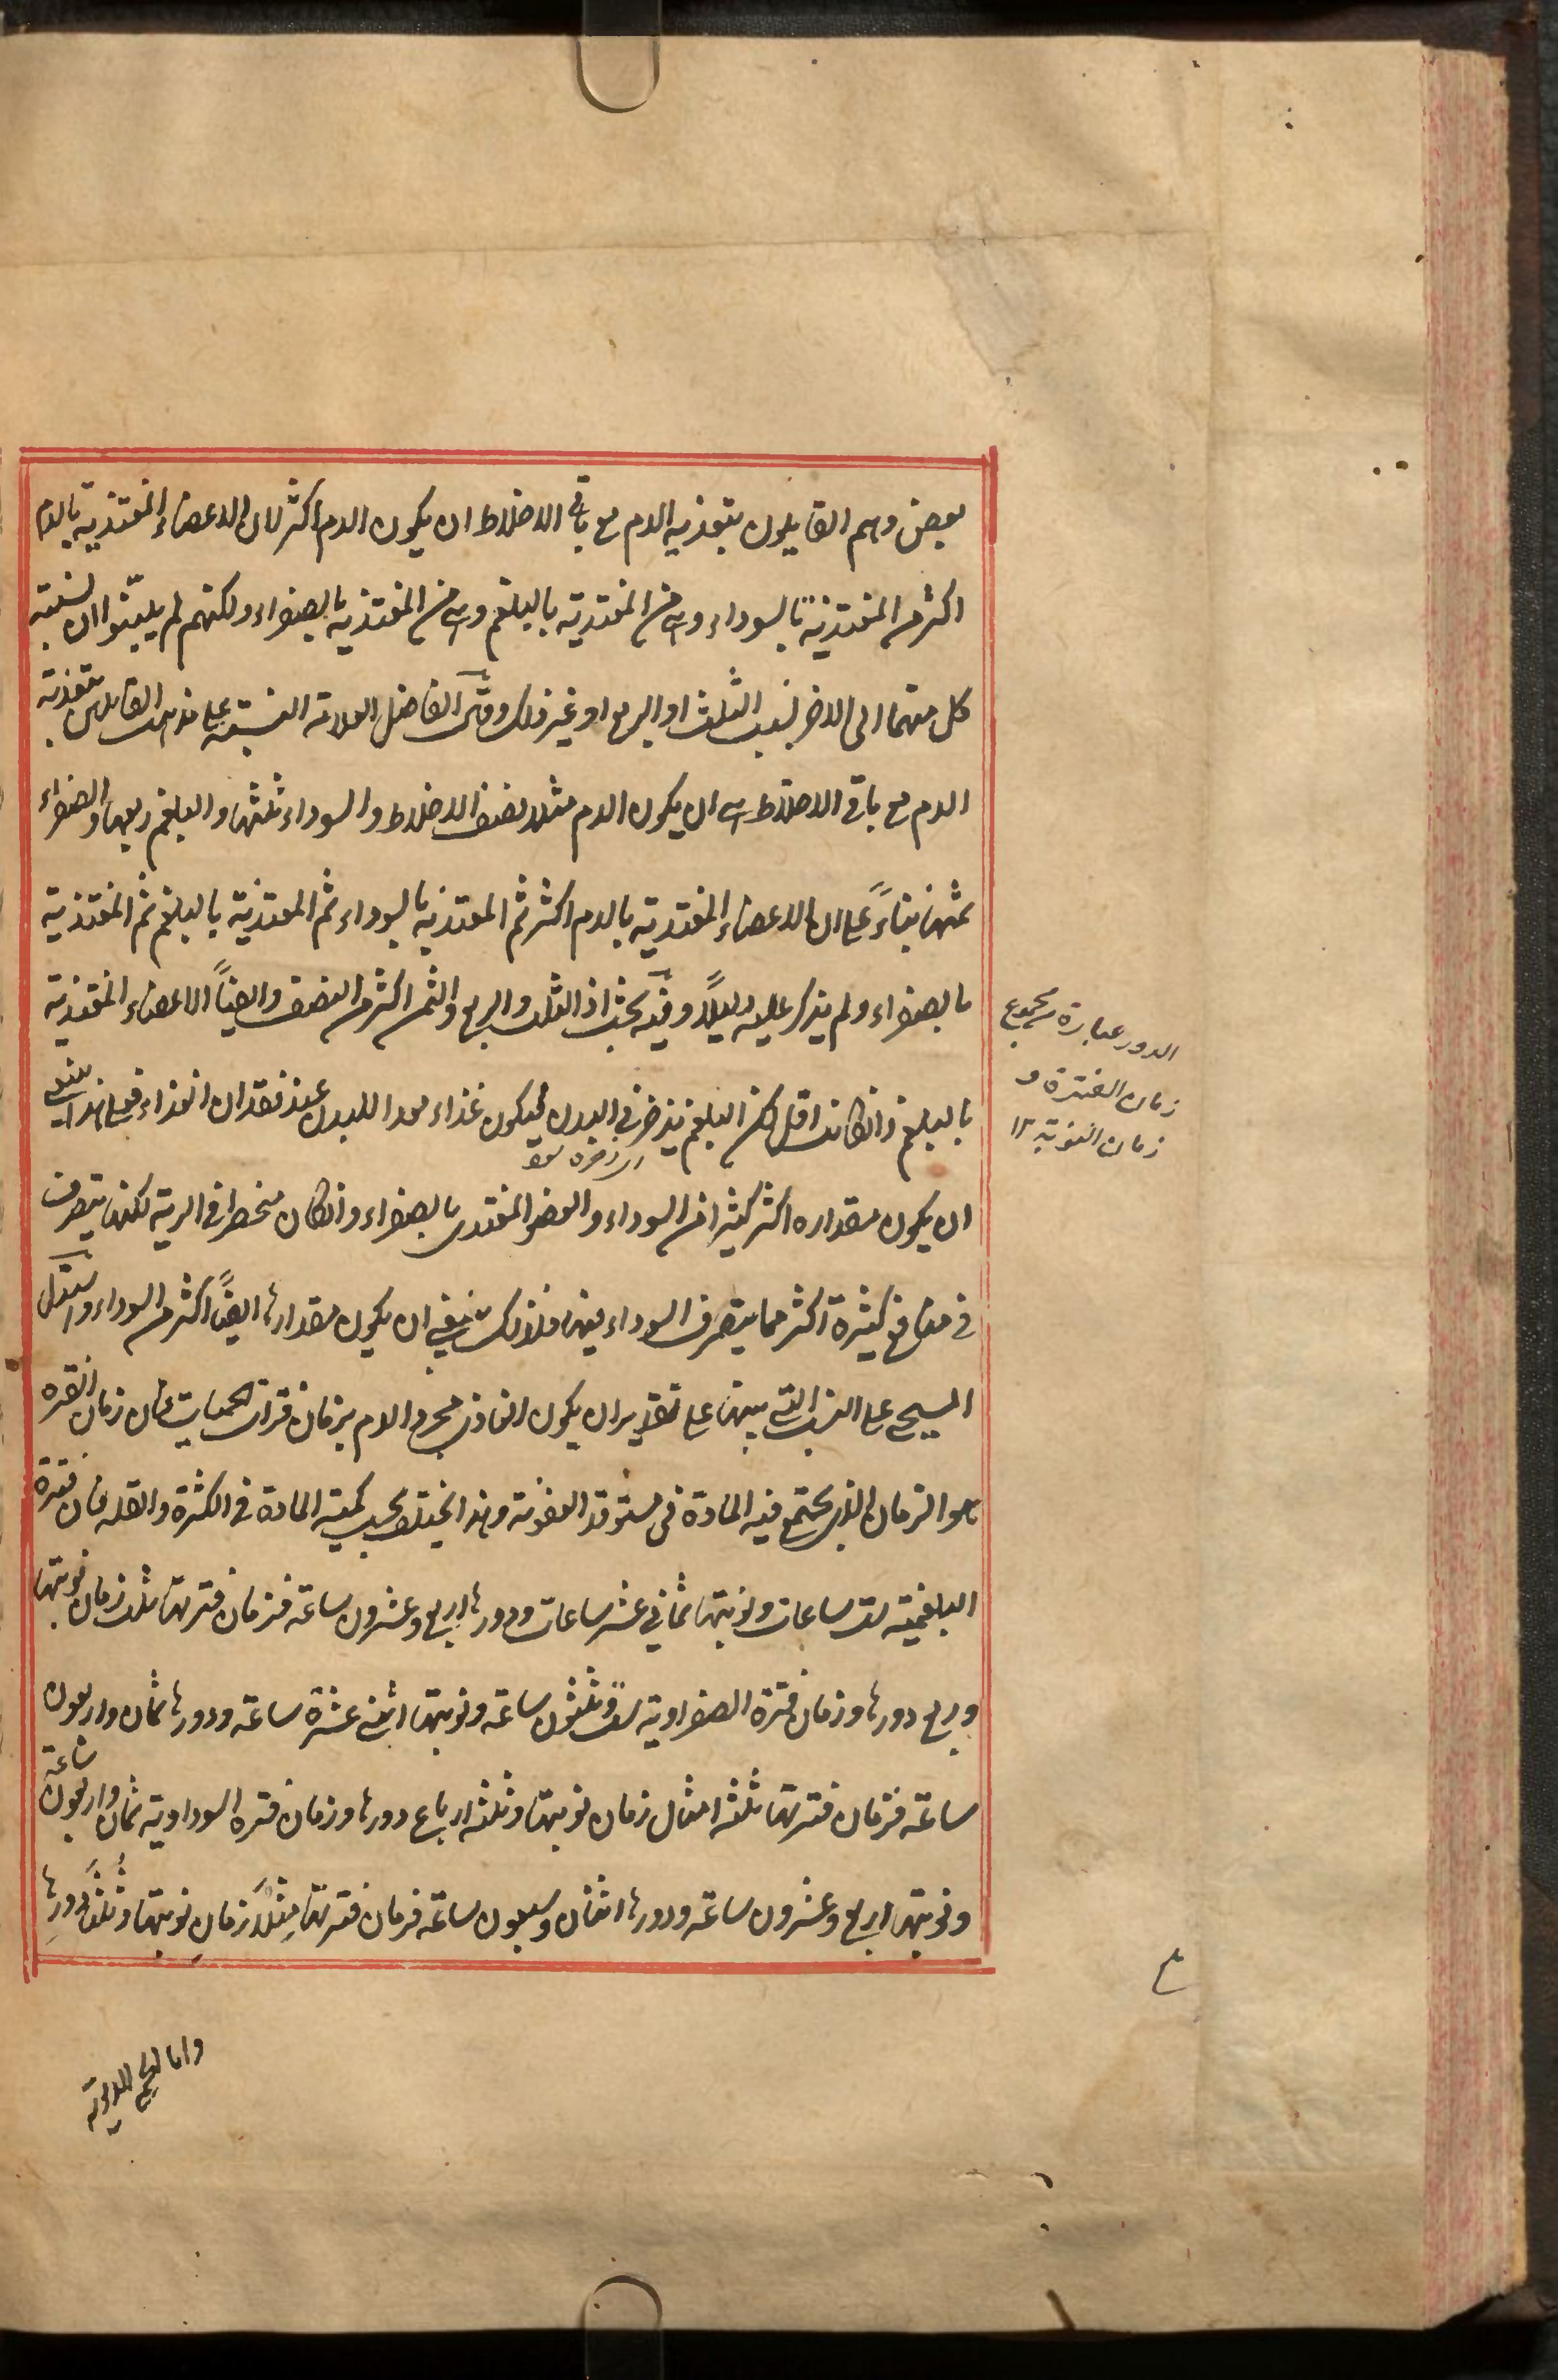 بعض وهم القايلون بتغذية الدم مع باقى الاخلاط ان يكون الدم اكثر لان الاعضاء المغتذية بالدم
اكثر من المغتذية بالسوداء وهى من المغتذية بالبلغم وهى من المغتذية بالصفراء ولكنهم لم يبيّنوا ان نسبته
كل منهما الى الاخر بنسبة الثلث او الربع او غير ذلك وقال الفاضل العلامة النسبته على مذهب القايلين بتغذية
الدم مع باقى الاخلاط هى ان يكون الدم مثلا نصف الاخلاط والسوداء ثلثها والبلغم ربعها والصفراء
ثمنها بناءً على ان الاعضاء المغتذية بالدم اكثر ثم المغتذية بالسوداء ثم المغتذية بالبلغم ثم المغتذية
بالصفراء ولم يذكر عليه دليلاً وفيه بحث اذ الثلث والربع والثمن اكثر من النصف وايضاً الاعضاء المغتذية
بالبلغم وانكانت اقل لكن البلغم يذخر فى البدن ليكون غذاء معدا للبدن عند فقدان الغذاء فعلى هذا ينبغى
ان يكون مقداره اكثر كثيرا من السوداء والعضو المغتذى بالصفراء وانكان منحصرا فى الرية لكنها يتصرف
فى منافع كثيرة اكثر مما يتصرف السوداء فيها فلذلك ينبغى ان يكون مقدارها ايضاً اكثر من السوداء واستدل
المسيحى على النسب التى بينها على تقدير ان يكون الغاذى مجرد الدم بزمان فترات الحميات فان زمان الفترة
هو الزمان الذى يجتمع فيه المادة فى مستوقد العفونة وهذا يختلف بحسب كمية المادة فى الكثرة والقلة فان فترة
البلغمية ست ساعات ونوبتها ثمانى عشر ساعات ودورها اربع وعشرون ساعة فزمان فترتها ثلث زمان نوبتها
وربع دورها وزمان فترة الصفراوية ست وثلثون ساعة ونوبتها اثنى عشرة ساعة ودورها ثمان واربعون
ساعة فزمان فترتها ثلثة امثال زمان نوبتها وثلثة ارباع دورها وزمان فترة السوداوية ثمان واربعون ساعة
ونوبتها اربع وعشرون ساعة ودورها اثنان وسبعون ساعة فزمان فترتها مثلا زمان نوبتها وثلثا دورها
الدور عبارة مجموع
زمان الفترة و
زمان النوبة ١٢
واما الحمى الدموية